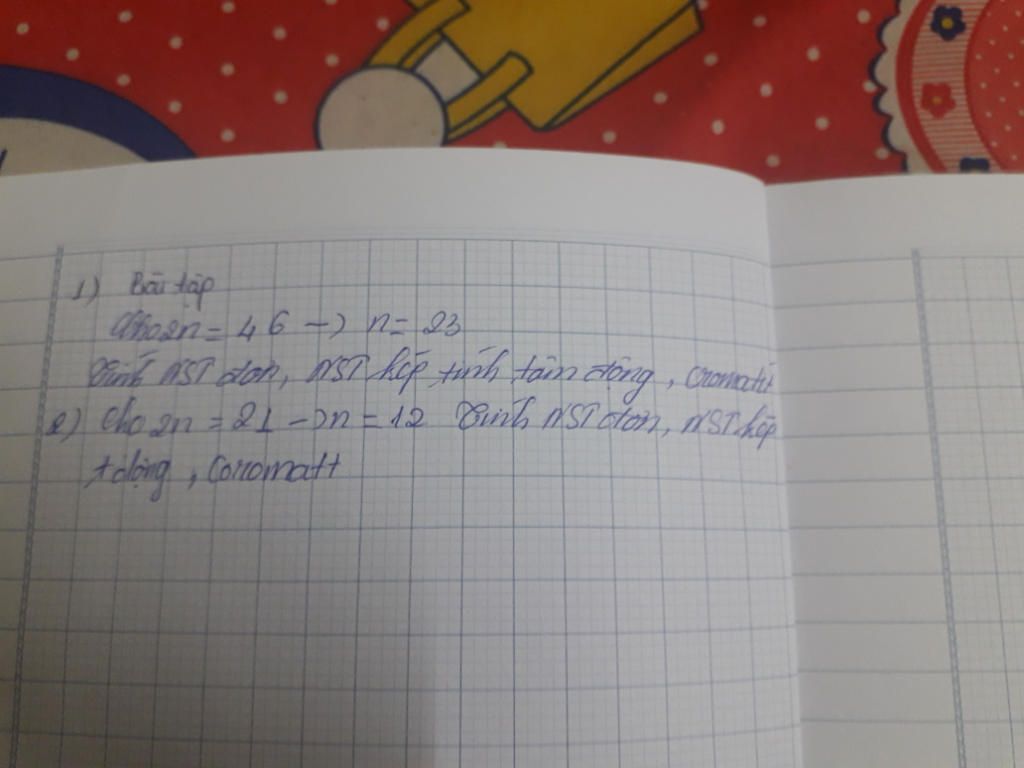 1) Bài tập
Cho 2n = 46 -> n = 23
Tính NST đơn, NST kép, tính tâm động, cromatit
2) Cho 2n = 21 -> n = 12 Tính NST đơn, NST kép
t động, coromatt